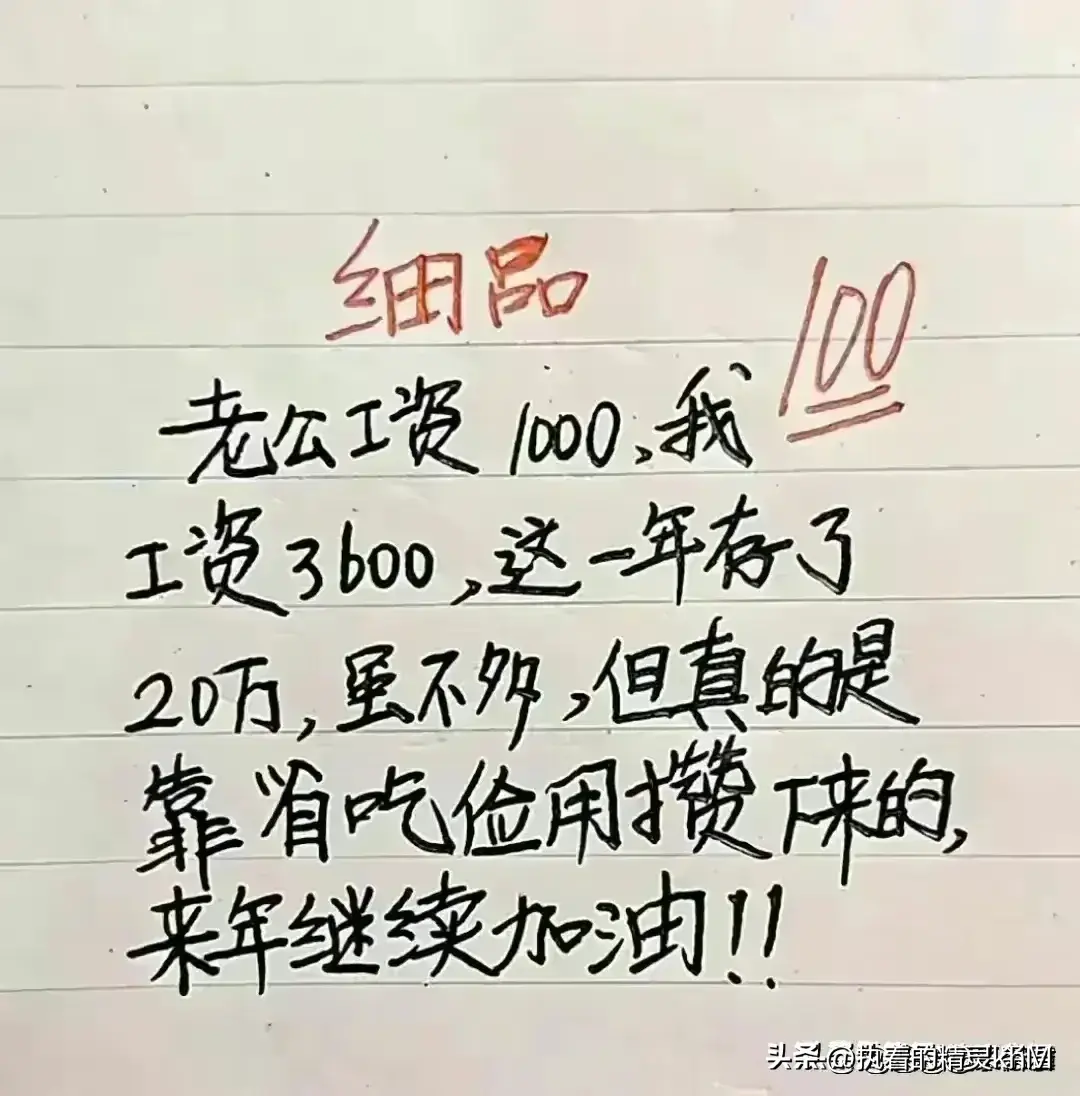 细品
100
老公工资1000,我
工资3600,这一年存了
20万,虽不多,但真的是
靠省吃俭用攒下来的,
来年继续加油!!
头条@执着的精灵